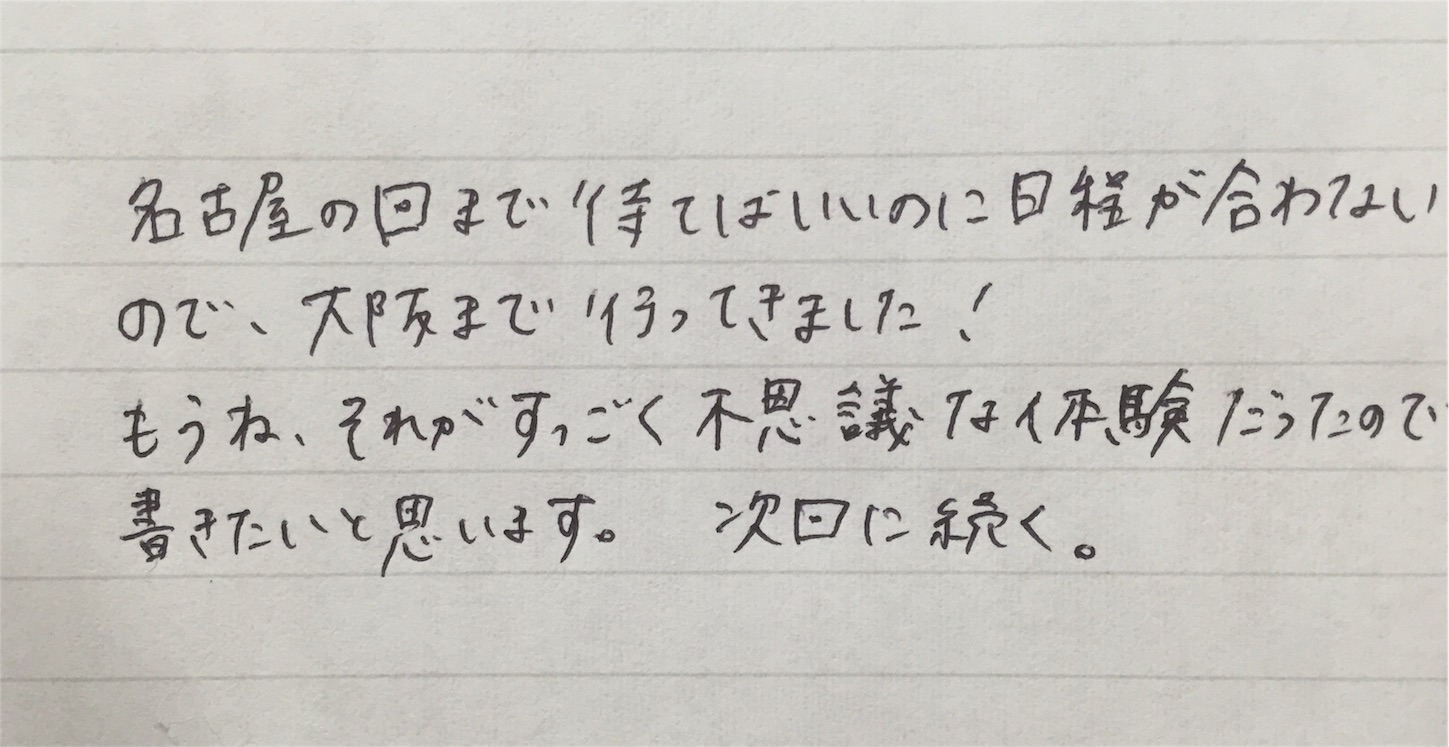 名古屋の回まで待てばいいのに日程が合わない
ので、大阪まで行ってきました!
もうね、それがすっごく不思議な体験だったので
書きたいと思います。 次回に続く。